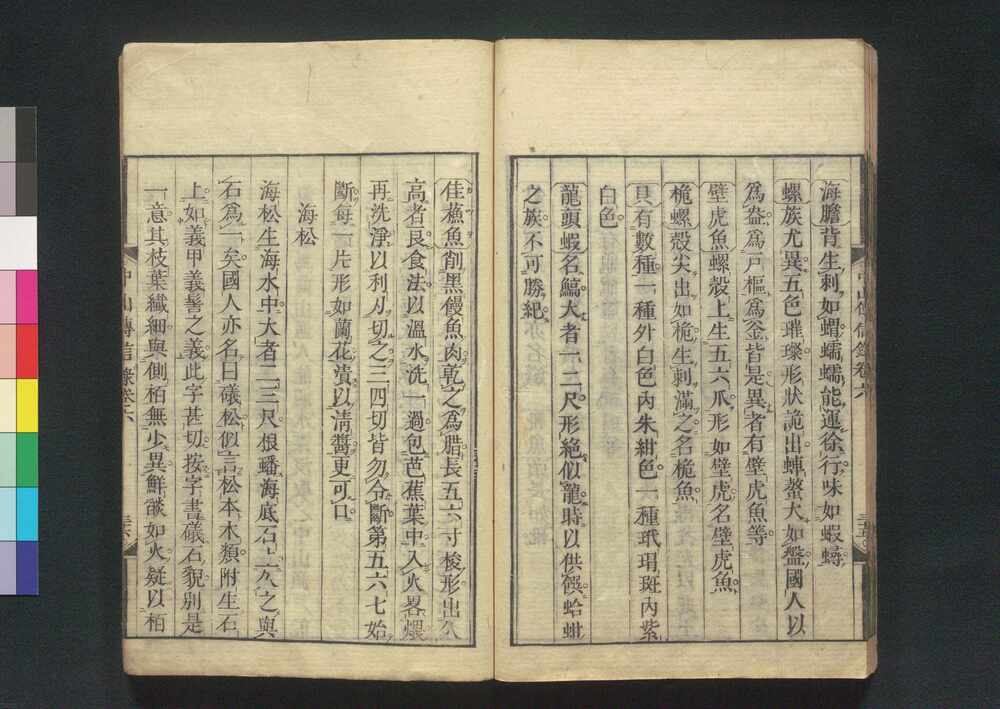 海膽背生刺如蝟蠕蠕能運徐行味如蝦蟳
螺族尤異五色璀璨形狀詭出蝳螯大如盤國人以
為盎為戶樞為釜皆是異者有壁虎魚等
壁虎魚螺殼上生五六爪形如壁虎名壁虎魚
桅螺殼尖出如桅生刺滿之名桅魚
貝有數種一種外白色內朱紺色一種玳瑁斑內紫
白色
龍頭蝦名鰝大者一二尺形絕似龍時以供饌蛤蚶
之族不可勝紀
佳蘓魚削黑饅魚肉乾之為腊長五六寸梭形出久
高者良食法以溫水洗一過包芭蕉葉中入火畧煨
再洗淨以利刀切之三四切皆勿令斷第五六七始
斷每一片形如蘭花漬以清醬更可口
海松
海松生海水中大者二三尺根蟠海底石上久之與
石為一矣國人亦名曰礒松似言松本木類附生石
上如義甲義髻之義此字甚切按字書礒石貌別是
一意其枝葉纖細與側栢無少異鮮燄如火疑以栢
中山傳信錄卷六